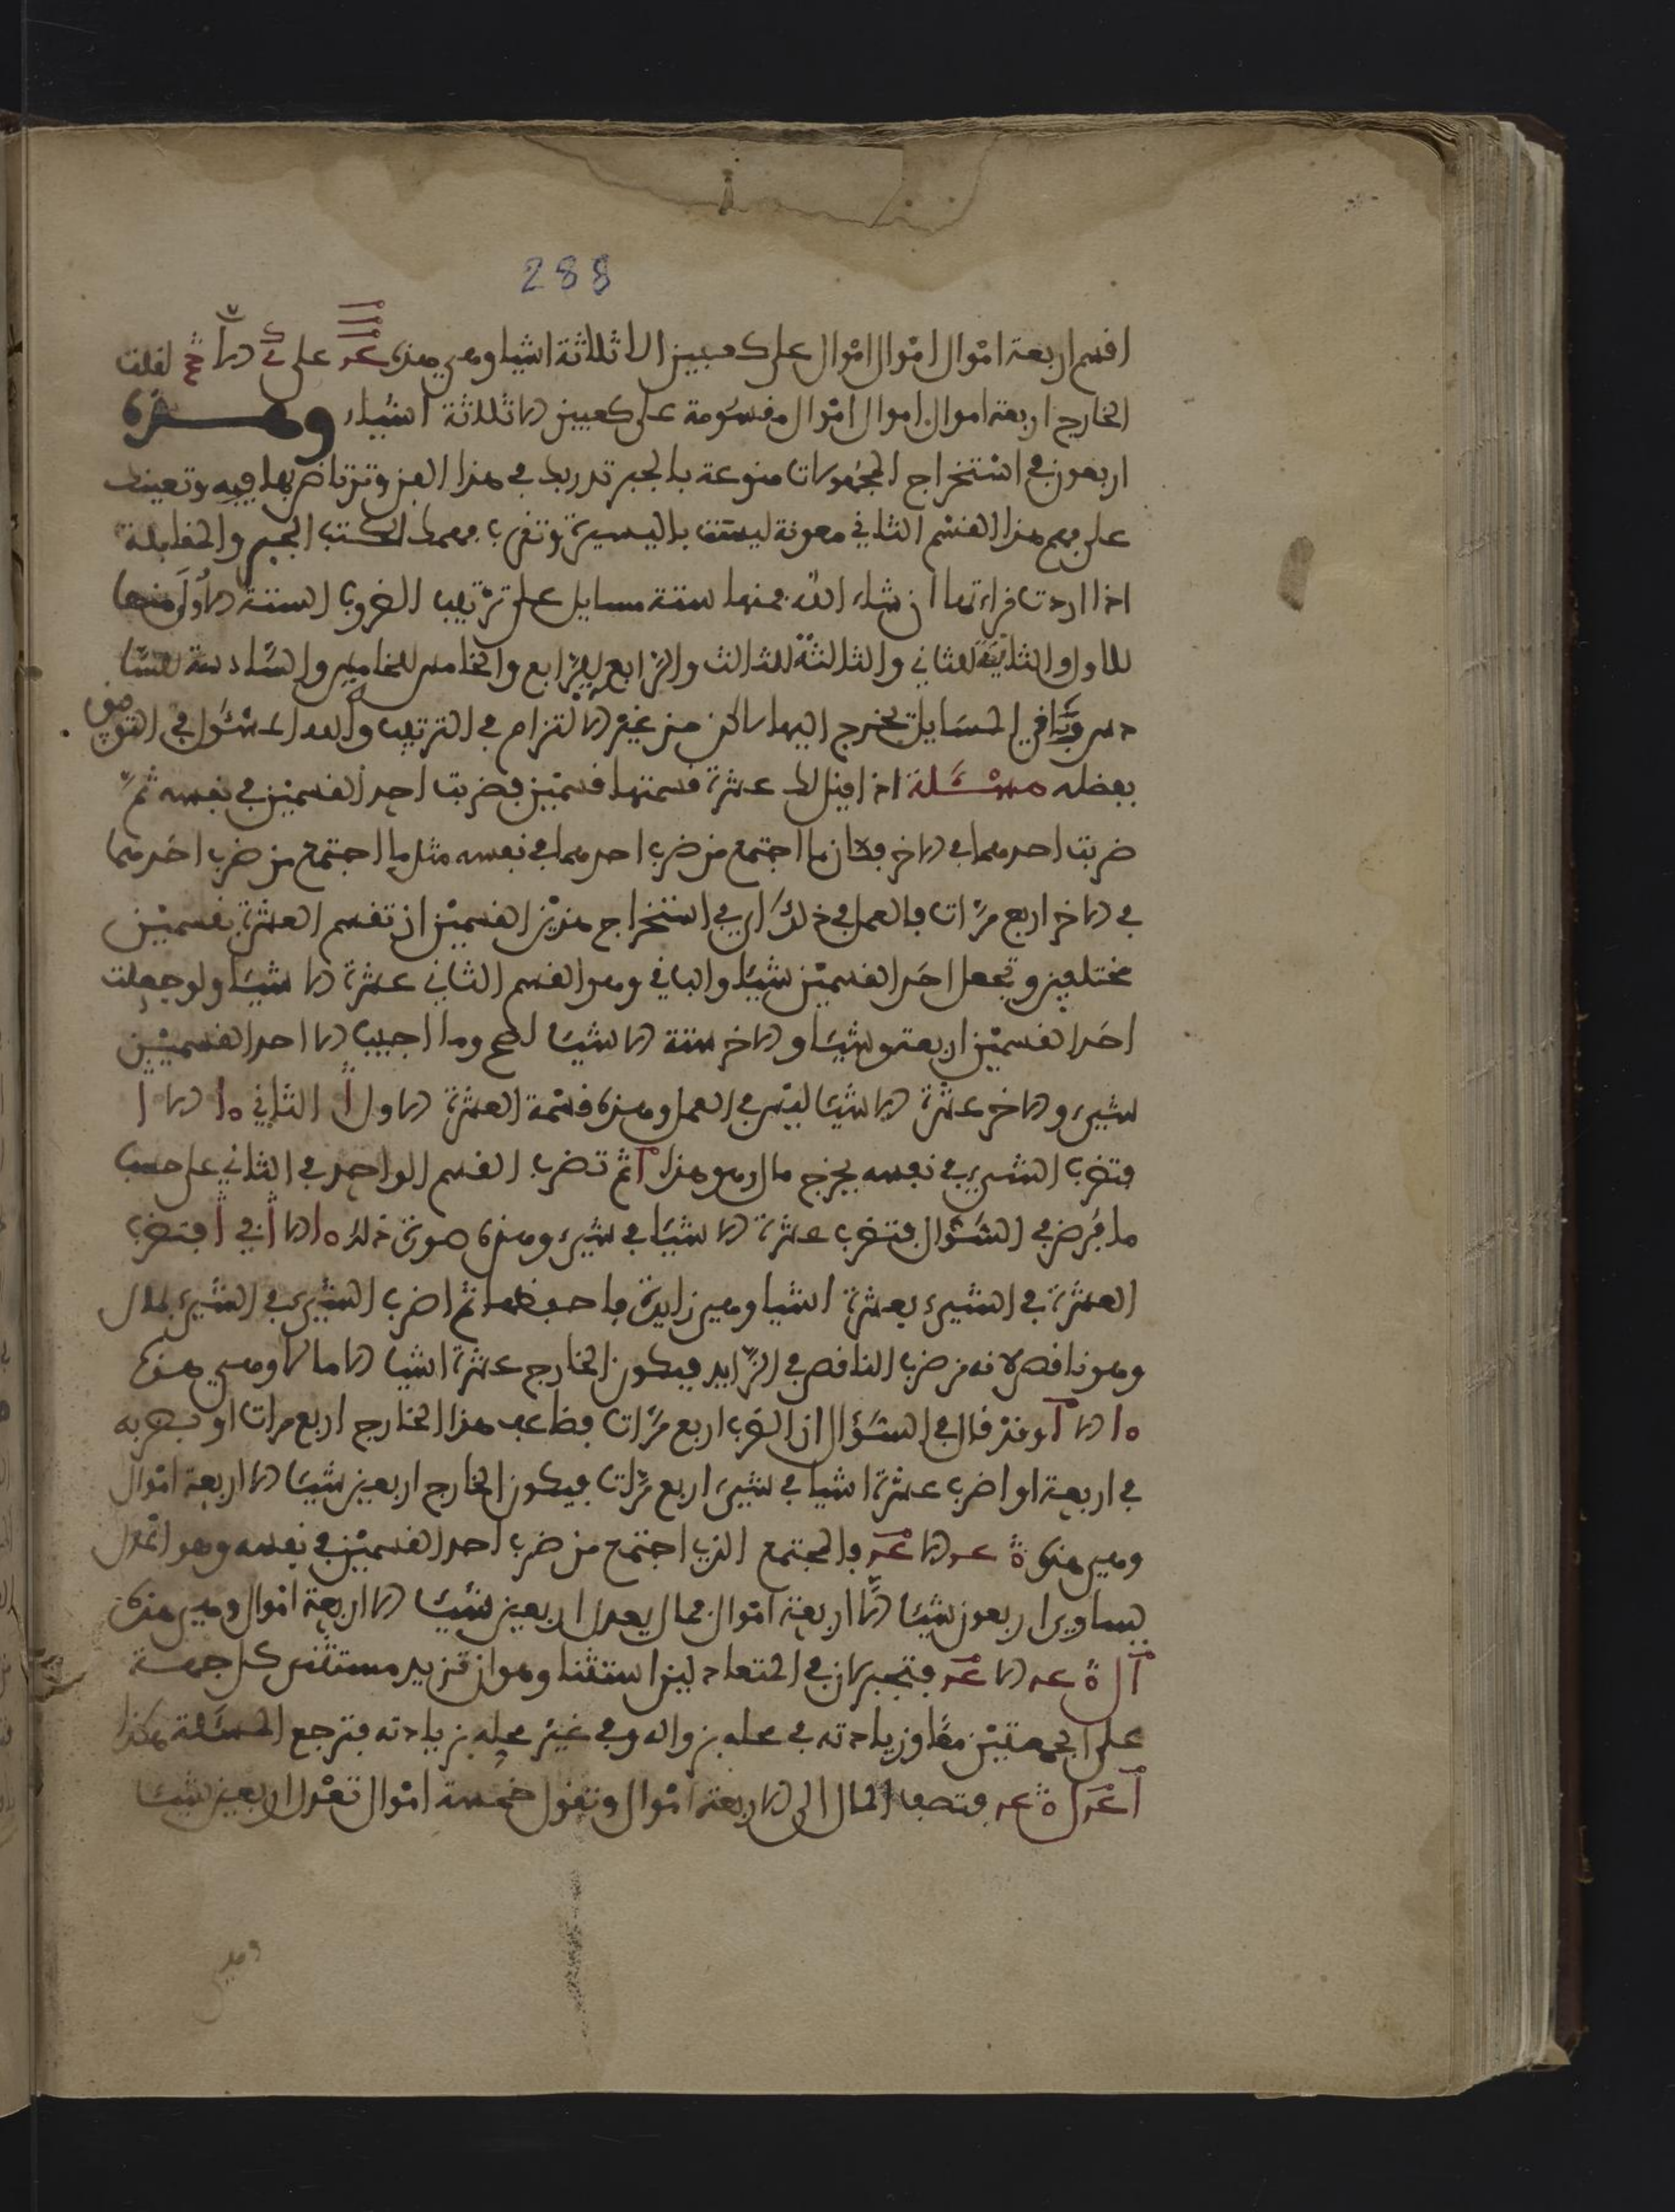 288
اقسم اربعة امْوال امْوال امْوال على كعبين الا ثلاثة اشيا وهي هذه على الا لقلت
الخارج اربعة اموال اموال امْوال مقسُومة على كعبين الا ثلاثة اشياء وهـــذه
اربعون في اسْتخراج المجهولات منوعة بالجبر تدربك في هذا الفن وترتاض بها فيه وتعينك
على فهم هذا القسْم الثاني معونة ليست باليسيرة وتقرب فهمك لكتب الجبر والمقابلة
اذا اردت قراءتها ان شاء الله فمنها ستة مسايل على ترْتيب الضروب الستة الاُولَى منها
للاول والثانيَة للثاني والثالثة للثالث والرّابع للرّابع والخامس للخامس والسّادسة للسّا
دس وبَاقي المسَايل يخرج اليها لاكن من غيْر الالتزام في الترتيب والله المسْئول في التوفيق
بفضله مسْــئَلة اذا قيل لك عشرة قسمتها قسْمَيْن فضربت احد القسميْن في نفسه ثمّ
ضربت احدهما في الاخر فكان ما اجتمع من ضرب احدهما في نفسه مثل ما اجتمع من ضرب احَدهما
في الاخر اربع مرّات فالعمل في ذلكَ اي في استخراج هذيْن القسميْن ان تقسم العشرة بقسميْن
مختلفين وتجعل احَد القسميْن شيئا والباقي وهو القسم الثاني عشرة الا شيئا ولو جعلت
احَد القسميْن اربعة وشيئا والاخر ستة الا شيئا لصح وما اجيب الا احد القسميْن
شيء والاخر عشْرة الا شيئا ليَسْر في العمل وهذه قسْمة العشرة الاول ا الثاني ١٥ الا ا
فتضرب الشيء في نفسه يخرج مال وهو هذا ا ثم تضرب القسم الواحد في الثاني على حسب
ما فُرض في السّؤال فتضرب عشرة الا شيئا في شيء وهذه صورة ذلك ١٥ الا ا في ا فتضرب
العشرة في الشيء بعشرة اشيا وهي زايدة فاحفظها ثم اضرب الشيء في الشيء بمال
وهو ناقص لانه من ضرب الناقص في الزّايد فيكون الخارج عشرة اشيا الا مالا وهي هذه
١٥ الا ا وقدْ قال في السّؤال ان الضرب اربع مرّات فضاعف هذا الخارج اربع مرات او تضربه
في اربعة او اضرب عشرة اشيا في شيء اربع مرّات فيكون الخارج اربعين شيئا الا اربعة امْوال
وهي هذه الا فالمجتمع الذي اجتمع من ضرب احد القسميْن في نفسه وهو المال
يساوي اربعون شيئا الا اربعة امْوال فمال يعدل اربعين شيئا الا اربعة امْوال وهي هذه
ال الا فتجبر لان في المتعادلين استثنا وهو ان تزيد مستثنى كل جهـــة
على الجهتيْن معًا وزيادته في محله بزواله وفي غيْر محله بزيادته فترجع المسْئلة هكذا
ا ل فتضف المال الى الاربعة امْوال وتقول خمْسة امْوال تعْدل اربعين شيئا